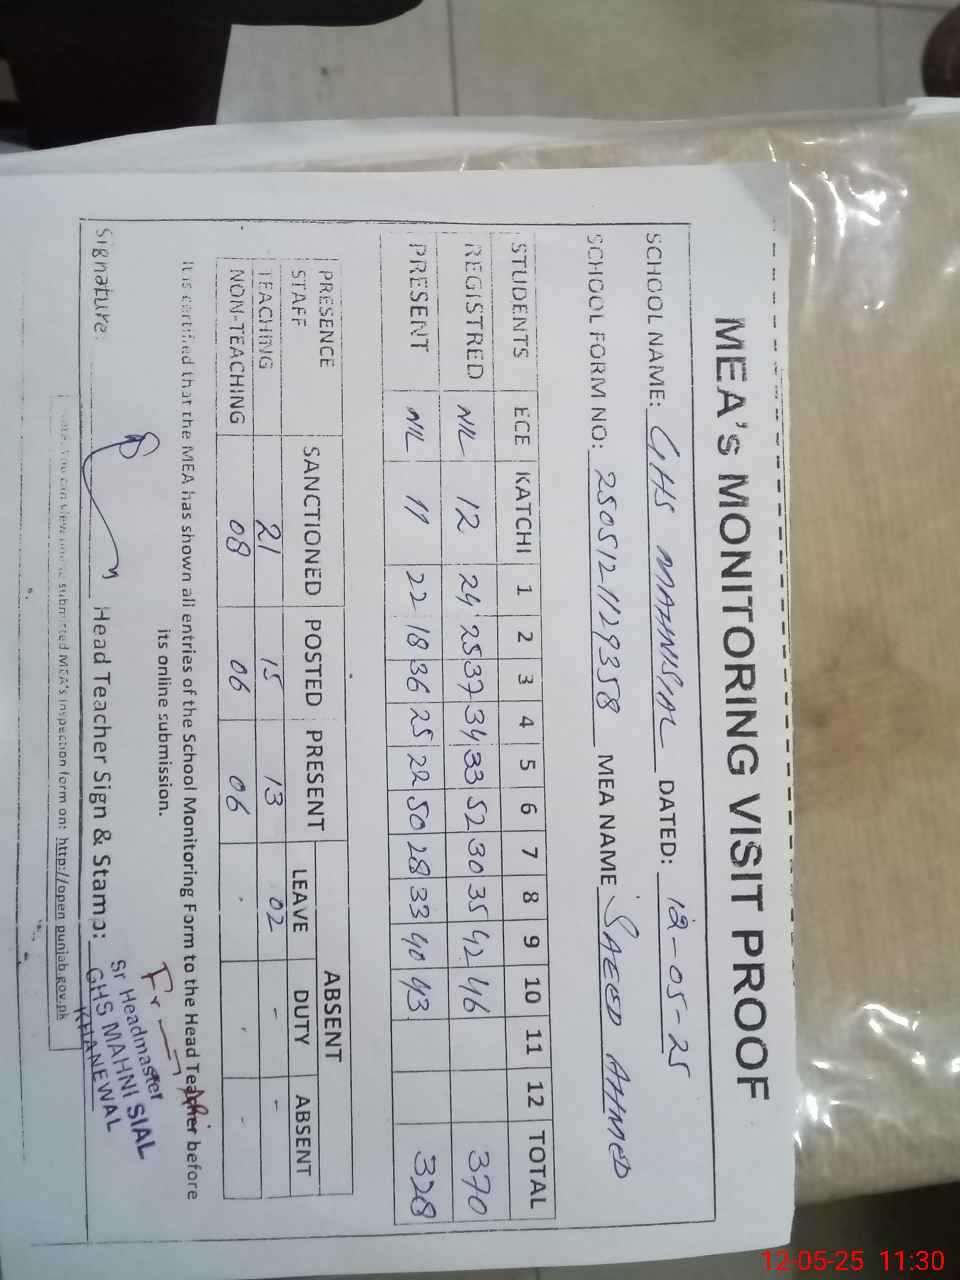 MEA's MONITORING VISIT PROOF
SCHOOL NAME: GHS MAHNISIAL DATED: 12-05-25
SCHOOL FORM NO: 2505121129358 MEA NAME SAEED AHMED
STUDENTS ECE KATCHI 1 2 3 4 5 6 7 8 9 10 11 12 TOTAL
REGISTRED NIL 12 24 25 37 34 33 52 30 35 42 46 370
PRESENT NIL 11 22 18 36 25 22 50 28 33 40 43 328
PRESENCE SANCTIONED POSTED PRESENT ABSENT
STAFF LEAVE DUTY ABSENT
TEACHING 21 15 13 02 - -
NON-TEACHING 08 06 06 . . .
It is certified that the MEA has shown all entries of the School Monitoring Form to the Head Teacher before
its online submission.
Signature: Head Teacher Sign & Stamp:
Sr Headmaster
GHS MAHNI SIAL
KHANEWAL
Note: You can view online submitted MEA's inspection form on: http://open.punjab.gov.pk
12-05-25 11:30